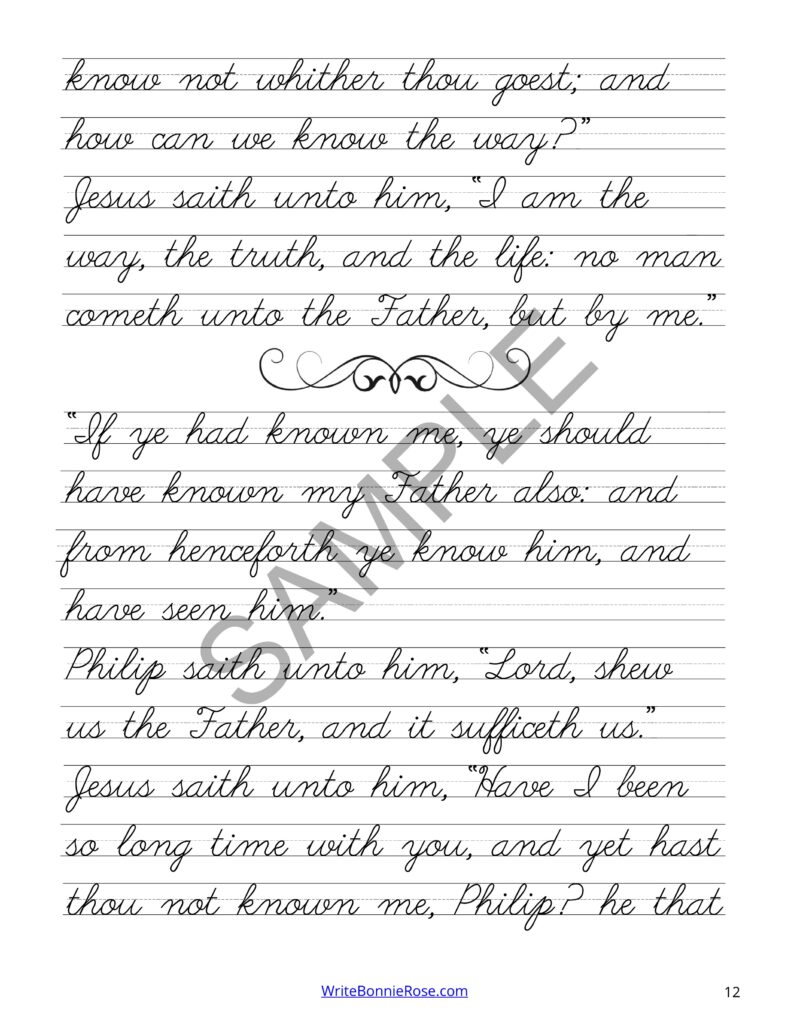 know not whither thou goest; and
how can we know the way?"
Jesus saith unto him, "I am the
way, the truth, and the life: no man
cometh unto the Father, but by me."
"If ye had known me, ye should
have known my Father also: and
from henceforth ye know him, and
have seen him."
Philip saith unto him, "Lord, shew
us the Father, and it sufficeth us."
Jesus saith unto him, "Have I been
so long time with you, and yet hast
thou not known me, Philip? he that
SAMPLE
WriteBonnieRose.com
12